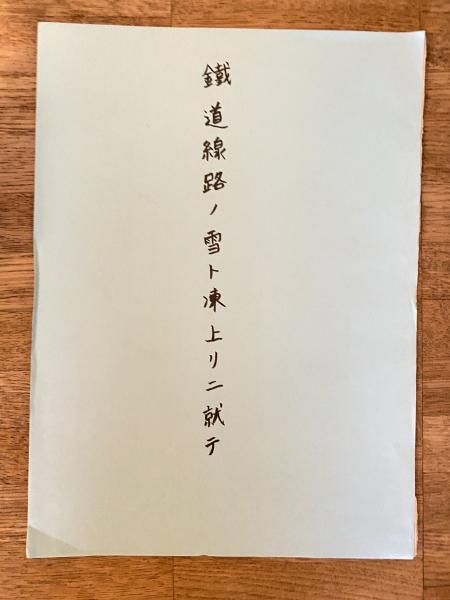 鐵道線路ノ雪ト凍上リニ就テ